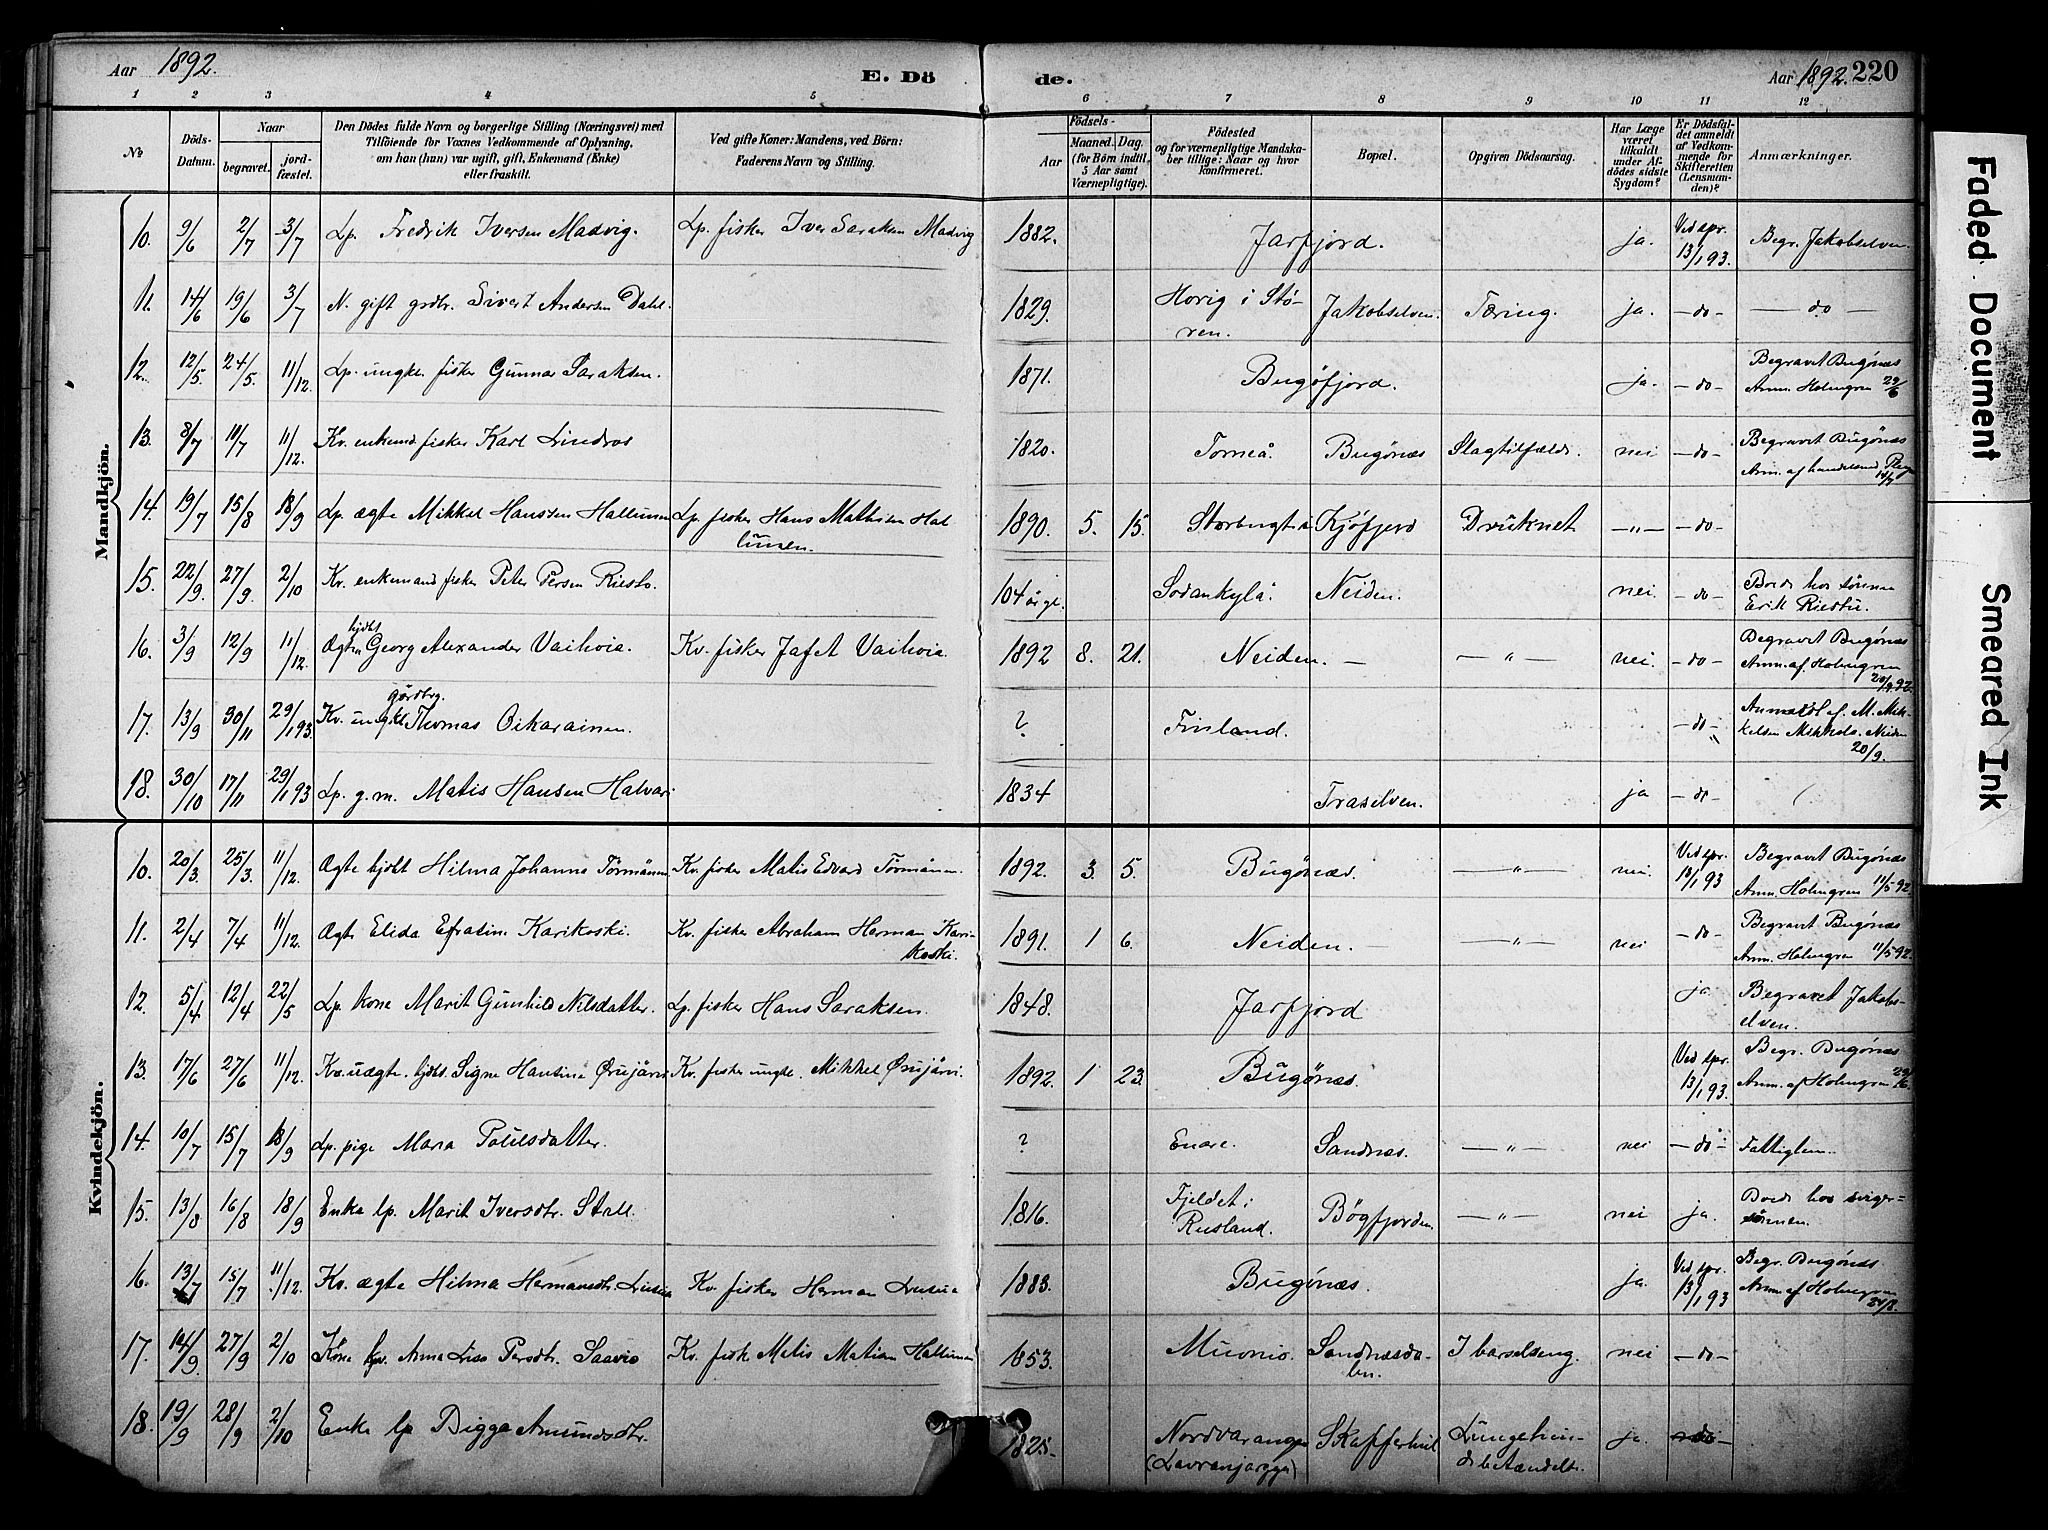 Aar 1892.
E. Dö
de.
Aar 1892. 220
1 2 3 4 5 6 7 8 9 10 11 12
No
Döds-
Datum.
Naar
begravet.
jord-
fæstet.
Den Dödes fulde Navn og borgerlige Stilling (Næringsvei) med
Tilföiende for Voxnes Vedkommende af Oplysning,
om han (hun) var ugift, gift, Enkemand (Enke)
eller fraskilt.
Ved gifte Koner: Mandens, ved Börn:
Faderens Navn og Stilling.
Födsels-
Aar
Maaned. Dag.
(for Börn indtil
5 Aar samt
Værnepligtige).
Födested
og for værnepligtige Mandska-
ber tillige: Naar og hvor
konfirmeret.
Bopæl.
Opgiven Dödsaarsag.
Har Læge
været
tilkaldt
under Af-
dödes sidste
Sygdom?
Er Dödsfal-
det anmeldt
af Vedkom-
mende for
Skifteretten
(Lensman-
den)?
Anmærkninger.
Mandkjön.
10. 9/6 2/7 3/7 Lp. Fredrik Iversen Madvig. Lp. fisker Iver Saraksen Madvig 1882. Jarfjord. ja. Ved spr. 13/1 93. Begr. Jakobselven.
11. 14/6 19/6 3/7 N. gift grdbr. Sivert Andersen Dahl. 1829. Horig i Stö-
ren. Jakobselven. Tæring. ja. -do- -do-
12. 12/5 24/5 11/12. Lp. ungk. fisker Gunnar Saraksen. 1871. Bugöfjord. ja. -do- Begravet Bugönæs
Anm. Holmgren 29/6
13. 8/7 11/7 11/12. Kv. enkemd fisker Karl Lindros 1820. Torneå. Bugönæs Slagtilfælde. nei -do- Begravet Bugönæs
Anm. af handelsmd
14. 19/7 15/8 18/9 Lp. ægte Mikkel Hansen Hallunen Lp. fisker Hans Mathisen Hal
lunen. 1890. 5. 15. Storbugt i Kjöfjord Druknet -"- -do-
15. 22/9. 27/9. 2/10 Kv. enkemand fisker Peter Persen Riesto. 104 årgl. Sodankylå. Neiden. nei. -do- Boede hos sönnen
Erik Riesto.
16. 3/9 12/9 11/12. Ægte hjdbt Georg Alexander Vaihoia. Kv. fisker Jafet Vaihoia. 1892 8. 21. Neiden. - -"- nei. -do- Begravet Bugönæs
Anm. af Holmgren
20/9 92.
17. 13/9 30/11 29/1 93. Kv. ungkl gårdbrg. Thomas Oikarainen. ? Finland. -do- Anmeldt af M. Mik-
kelsen Mikkola. Neiden
20/9.
18. 30/10 17/11 29/1 93 Lp. g. m. Matis Hansen Halvari 1834 Traselven. ja -do-
Kvindekjön.
10. 20/3 25/3 11/12. Ægte hjdbt Hilma Johanna Törmänen Kv. fisker Matis Edvard Törmänen. 1892. 3 5. Bugönæs. -"- nei. Ved spr. 13/1 93 Begravet Bugönæs
Anm. Holmgren 11/5 92.
11. 2/4 7/4 11/12. Ægte Elida Efrasine Karikoski. Kv. fisker Abraham Herman Kari-
koski. 1891. 1 6. Neiden. - -"- nei -do- Begravet Bugönæs
Anm. Holmgren 11/5 92.
12. 5/4 12/4 22/5 Lp. kone Marit Gunhild Nilsdatter. Lp. fisker Hans Saraksen. 1848. Jarfjord ja. Begravet Jakobs-
elven.
13. 17/6 27/6 11/12 Kv. uægte. hjdbt. Signe Hansine Ørujärvi Kv. fisker ungk. Mikkel Ørujärvi. 1892. 1 23. Bugönæs. Ved spr. 13/1 93. Begr. Bugönæs
Anm. af Holmgren 29/6.
14. 10/7 15/7 18/9 Lp. pige Maria Poulsdatter. ? Enare. Sandnæs. -"- nei -do- Fattiglem.
15. 13/8 16/8 18/9 Enke lp. Marit Iversdtr. Stall 1816. Fjeldet i
Rusland. Bögfjorden. -"- nei ja. Boede hos sviger-
sönnen.
16. 13/7 15/7 11/12. Kv. ægte Hilma Hermansdtr. Lusua Kv. fisker Herman Lusua 1883. Bugönæs. ja. Ved spr. 13/1 93 Begr. Bugönæs
Anm. af Holmgren
17. 14/9. 27/9 2/10 Kone kv. Anna Lisa Persdtr. Saavio Kv. fisk. Matis Matisen Hallunen 1853. Muonio. Sandnæsda-
len. I barselseng. nei -do-
18. 19/9 28/9 2/10 Enke lp Bigga Amundsdtr. 1825. Nordvaranger
(Lavranjargga) Skafferhul Lungebetændelse. ja. -do-
Faded Document
Smeared Ink